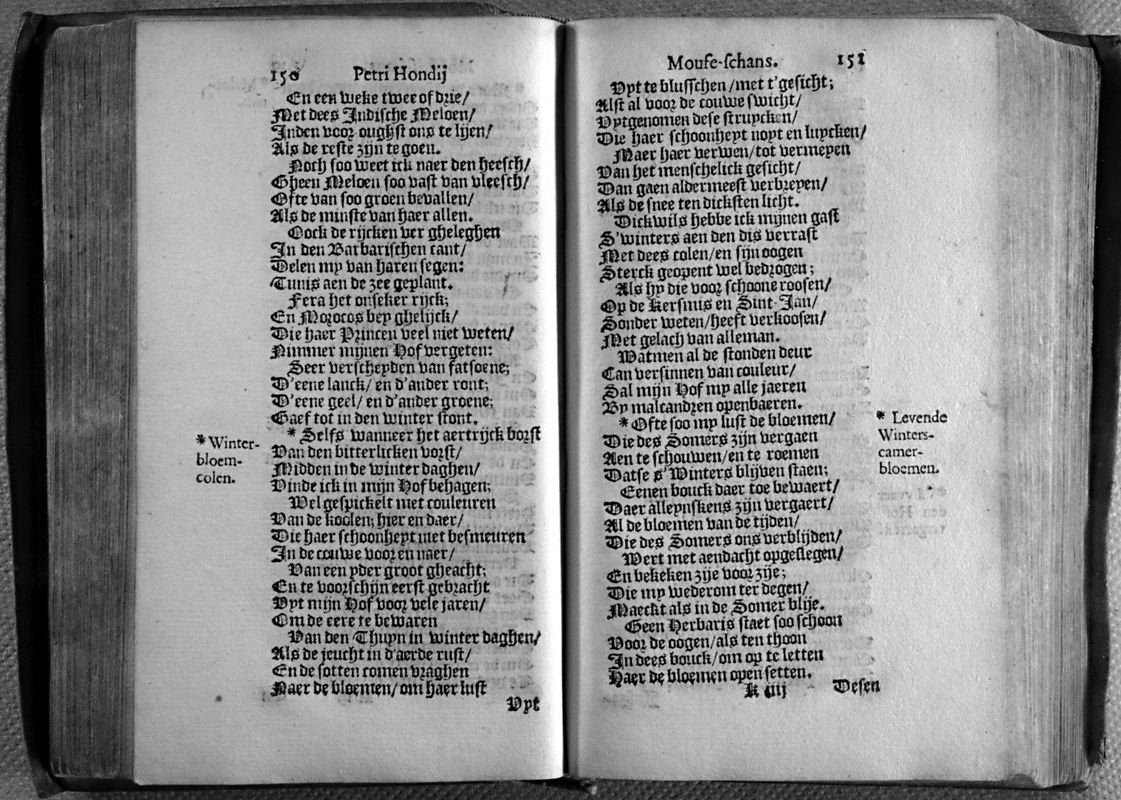 150 Petri Hondij
En een weke twee of drie/
Met dees Indische Meloen/
Inden voor oughst ons te lijen/
Als de reste zijn te goen.
Noch soo weet ick naer den heesch/
Gheen Meloen soo vast van vleesch/
Ofte van soo groen bevallen/
Als de minste van haer allen.
Oock de rijcken ver gheleghen
In den Barbarischen cant/
Delen my van haren segen:
Tunis aen de zee geplant.
Fera het onseker rijck;
En Morocos bey ghelijck/
Die haer Princen veel niet weten/
Nimmer mijnen Hof vergeten:
Seer verscheyden van fatsoene;
D'eene lanck/ en d'ander ront;
D'eene geel/ en d'ander groene;
Gaef tot in den winter stont.
* Selfs wanneer het aertrijck borst
Van den bitterlicken vorst/
Midden in de winter daghen/
Vinde ick in mijn Hof behagen;
Wel gespickelt met couleuren
Van de koolen; hier en daer/
Die haer schoonheyt niet besmeuren
In de couwe voor en naer/
Van een yder groot gheacht;
En te voorschijn eerst gebracht
Uyt mijn Hof voor vele jaren/
Om de eere te bewaren
Van den Thuyn in winter daghen/
Als de jeucht in d'aerde rust/
En de sotten comen vraghen
Naer de bloemen/ om haer lust
Vyt
* Winter-
bloem-
colen.
Mouse-schans. 151
Vyt te blusschen/ met t'gesicht;
Alst al voor de couwe swicht/
Vytgenomen dese struycken/
Die haer schoonheyt noyt en luycken/
Maer haer verwen/ tot vermeyen
Van het menschelick gesicht/
Dan gaen aldermeest verbreyen/
Als de snee ten dicksten licht.
Dickwils hebbe ick mijnen gast
S'winters aen den dis verrast
Met dees colen/ en sijn oogen
Sterck geopent wel bedrogen;
Als hy die voor schoone roosen/
Op de Kersmis en Sint-Jan/
Sonder weten/ heeft verkoosen/
Met gelach van alleman.
Watmen al de stonden deur
Can versinnen van couleur/
Sal mijn Hof my alle jaeren
By malcandren openbaeren.
* Ofte soo my lust de bloemen/
Die des Somers zijn vergaen
Aen te schouwen/ en te roemen
Datse s'Winters blijven staen;
Eenen bouck daer toe bewaert/
Daer alleynskens zijn vergaert/
Al de bloemen van de tijden/
Die des Somers ons verblijden/
Wert met aendacht opgeslegen/
En bekeken zije voor zije;
Die my wederom ter degen/
Maeckt als in de Somer blije.
Geen Herbaris staet soo schoon
Voor de oogen/ als ten thoon
In dees bouck/ om op te letten
Haer de bloemen open setten.
K iiij Desen
* Levende
Winters-
camer-
bloemen.